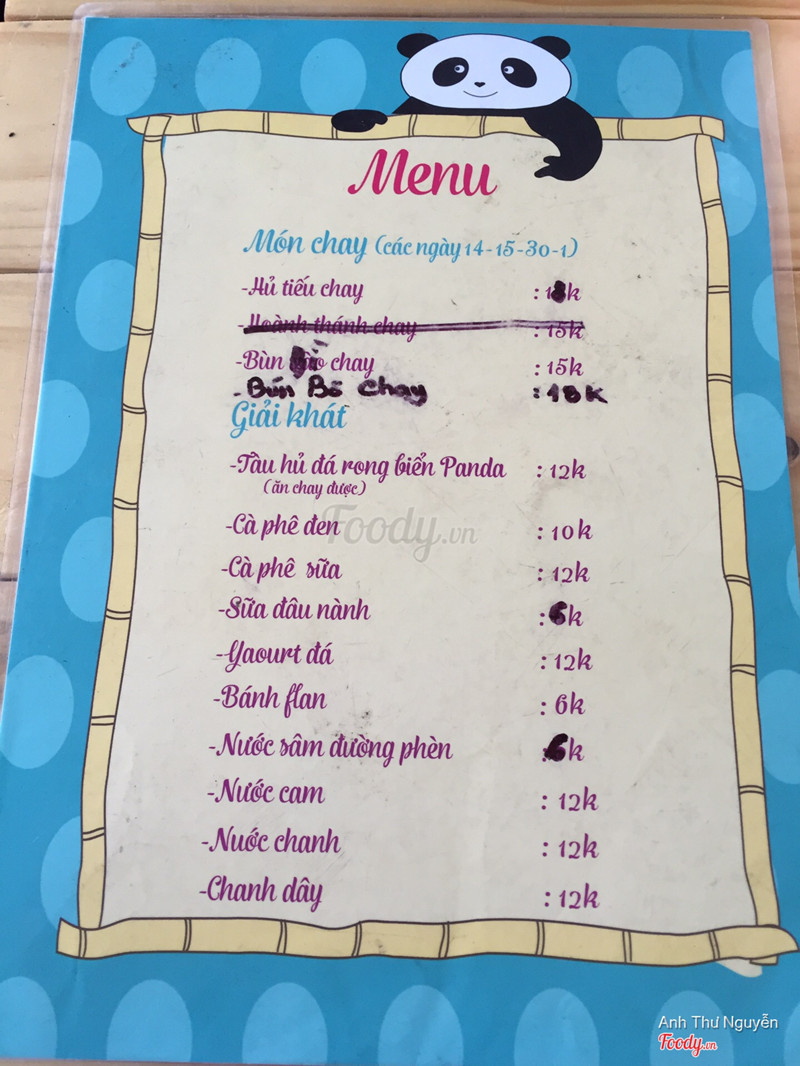 Menu
Món chay (các ngày 14-15-30-1)
-Hủ tiếu chay : 18k
-Hoành thánh chay : 15k
-Bùn chay : 15k
- Bún Bò chay : 18k
Giải khát
-Tàu hủ đá rong biển Panda : 12k
(ăn chay được)
-Cà phê đen : 10k
-Cà phê sữa : 12k
-Sữa đâu nành : 6k
-Yaourt đá : 12k
-Bánh flan : 6k
-Nước sâm đường phèn : 6k
-Nước cam : 12k
-Nuớc chanh : 12k
-Chanh dây : 12k
Foody.vn
Anh Thư Nguyễn
Foody.vn